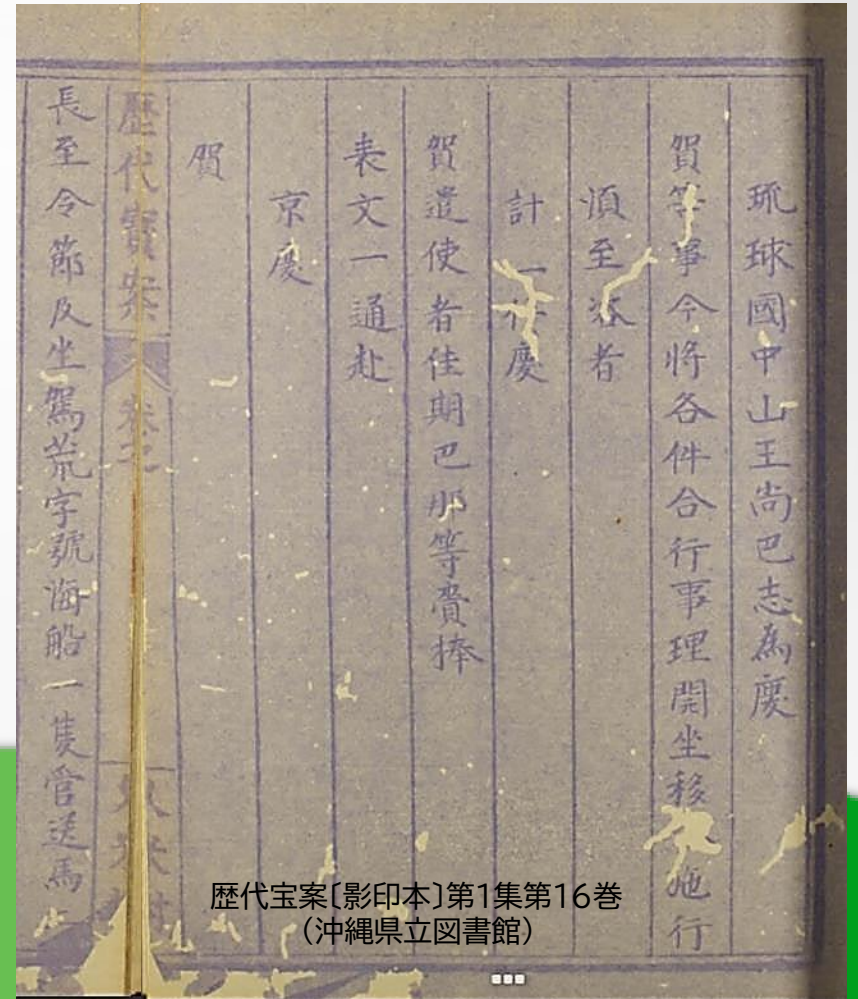 琉球國中山王尚巴志為慶
賀等事今將各件合行事理開坐移施行
須至咨者
計一件慶
賀遣使者佳期巴那等賫捧
表文一通赴
京慶
賀
歴代寳案
長至令節及坐駕荒字號海船一隻管送馬
歴代宝案〔影印本〕第1集第16巻
（沖縄県立図書館）